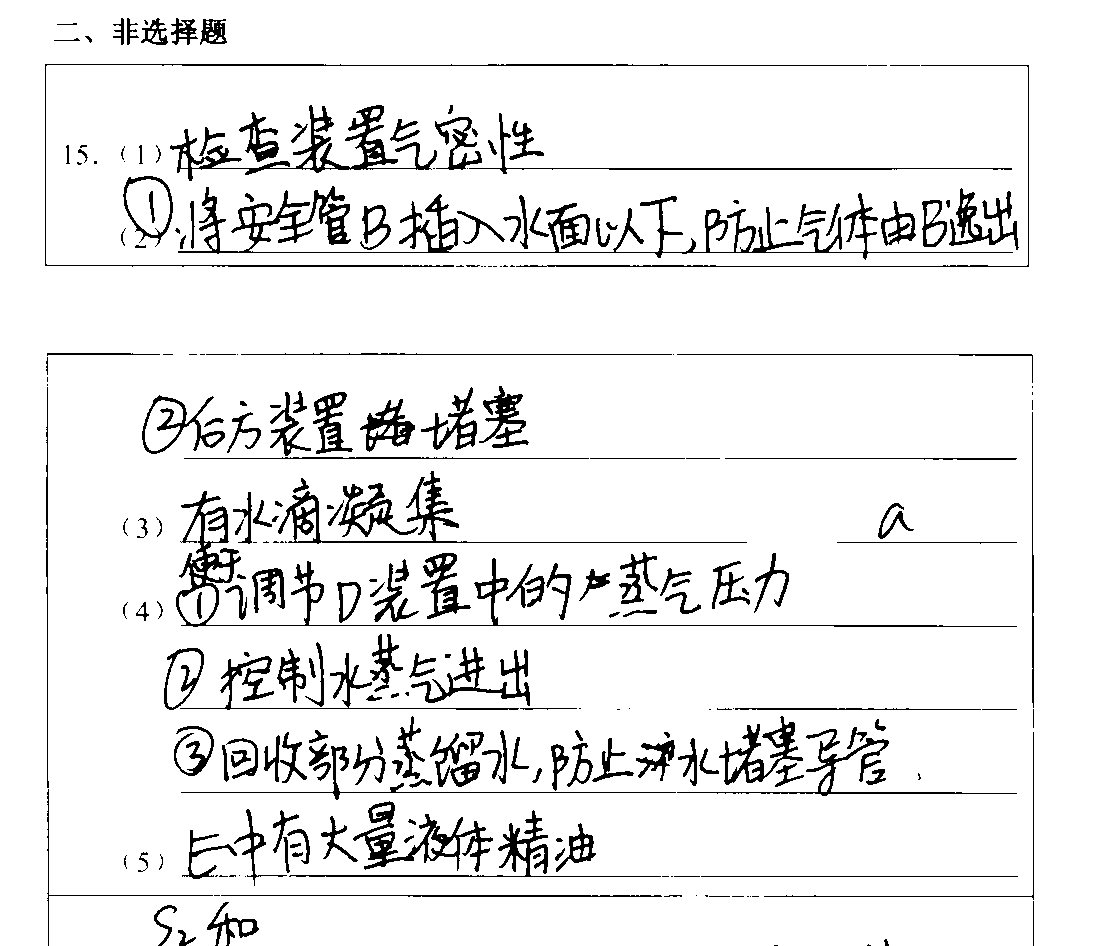 二、非选择题
15.（1）检查装置气密性
（2）①将安全管B插入水面以下,防止气体由B逸出
②后方装置堵塞
（3）有水滴凝集 a
（4）①调节D装置中的蒸气压力
②控制水蒸气进出
③回收部分蒸馏水,防止沸水堵塞导管.
（5）E中有大量液体精油
S₂和